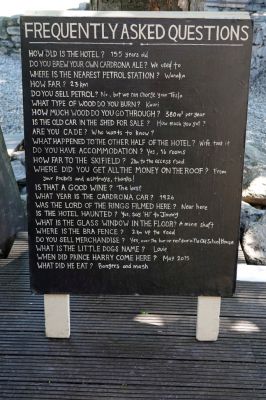 FREQUENTLY ASKED QUESTIONS
HOW OLD IS THE HOTEL? 155 years old
DO YOU BREW YOUR OWN CARDRONA ALE? We used to
WHERE IS THE NEAREST PETROL STATION? Wanaka
HOW FAR? 23km
DO YOU SELL PETROL? No, but we can charge your Tesla
WHAT TYPE OF WOOD DO YOU BURN? Kauri
HOW MUCH WOOD DO YOU GO THROUGH? 380m³ per year
IS THE OLD CAR IN THE SHED FOR SALE? How much you got?
ARE YOU CADE? Who wants to know?
WHAT HAPPENED TO THE OTHER HALF OF THE HOTEL? Wife took it
DO YOU HAVE ACCOMMODATION? Yes, 16 rooms
HOW FAR TO THE SKIFIELD? 2km to the access road
WHERE DID YOU GET ALL THE MONEY ON THE ROOF? From
your pockets and ashtrays, thanks!
IS THAT A GOOD WINE? The best
WHAT YEAR IS THE CARDRONA CAR? 1924
WAS THE LORD OF THE RINGS FILMED HERE? Near here
IS THE HOTEL HAUNTED? Yes, say 'Hi' to Jimmy
WHAT IS THE GLASS WINDOW IN THE FLOOR? A mine shaft
WHERE IS THE BRA FENCE? 2km up the road
DO YOU SELL MERCHANDISE? Yes, over the bar or next door in The Old School House
WHAT IS THE LITTLE DOGS NAME? Louie
WHEN DID PRINCE HARRY COME HERE? May 2015
WHAT DID HE EAT? Bangers and mash